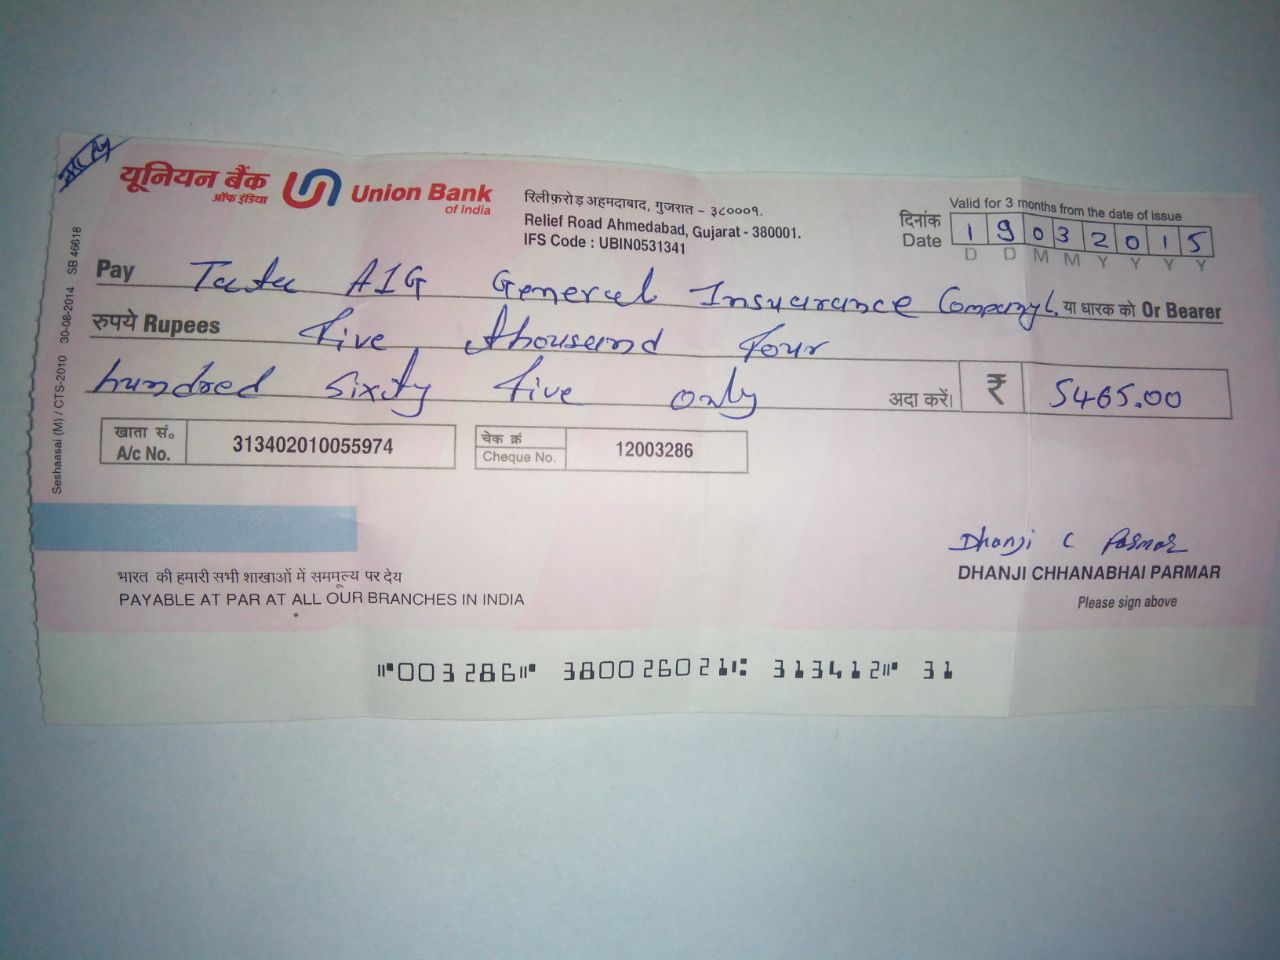 यूनियन बैंक
ऑफ इंडिया
Union Bank
of India
रिलीफ़रोड़ अहमदाबाद, गुजरात – ३८०००१.
Relief Road Ahmedabad, Gujarat - 380001.
IFS Code : UBIN0531341
Valid for 3 months from the date of issue
दिनांक
Date 19032015
D D M M Y Y Y Y
Pay Tata AIG General Insurance Company L. या धारक को Or Bearer
रुपये Rupees Five thousand four
hundred sixty five only अदा करें। ₹ 5465.00
खाता सं॰
A/c No. 313402010055974
चेक क्रं
Cheque No. 12003286
Seshaasai (M) / CTS-2010 30-08-2014 SB 46618
Dhanji C Parmar
DHANJI CHHANABHAI PARMAR
Please sign above
भारत की हमारी सभी शाखाओं में सममूल्य पर देय
PAYABLE AT PAR AT ALL OUR BRANCHES IN INDIA
⑈003286⑈ 380026021⑆ 313412⑈ 31